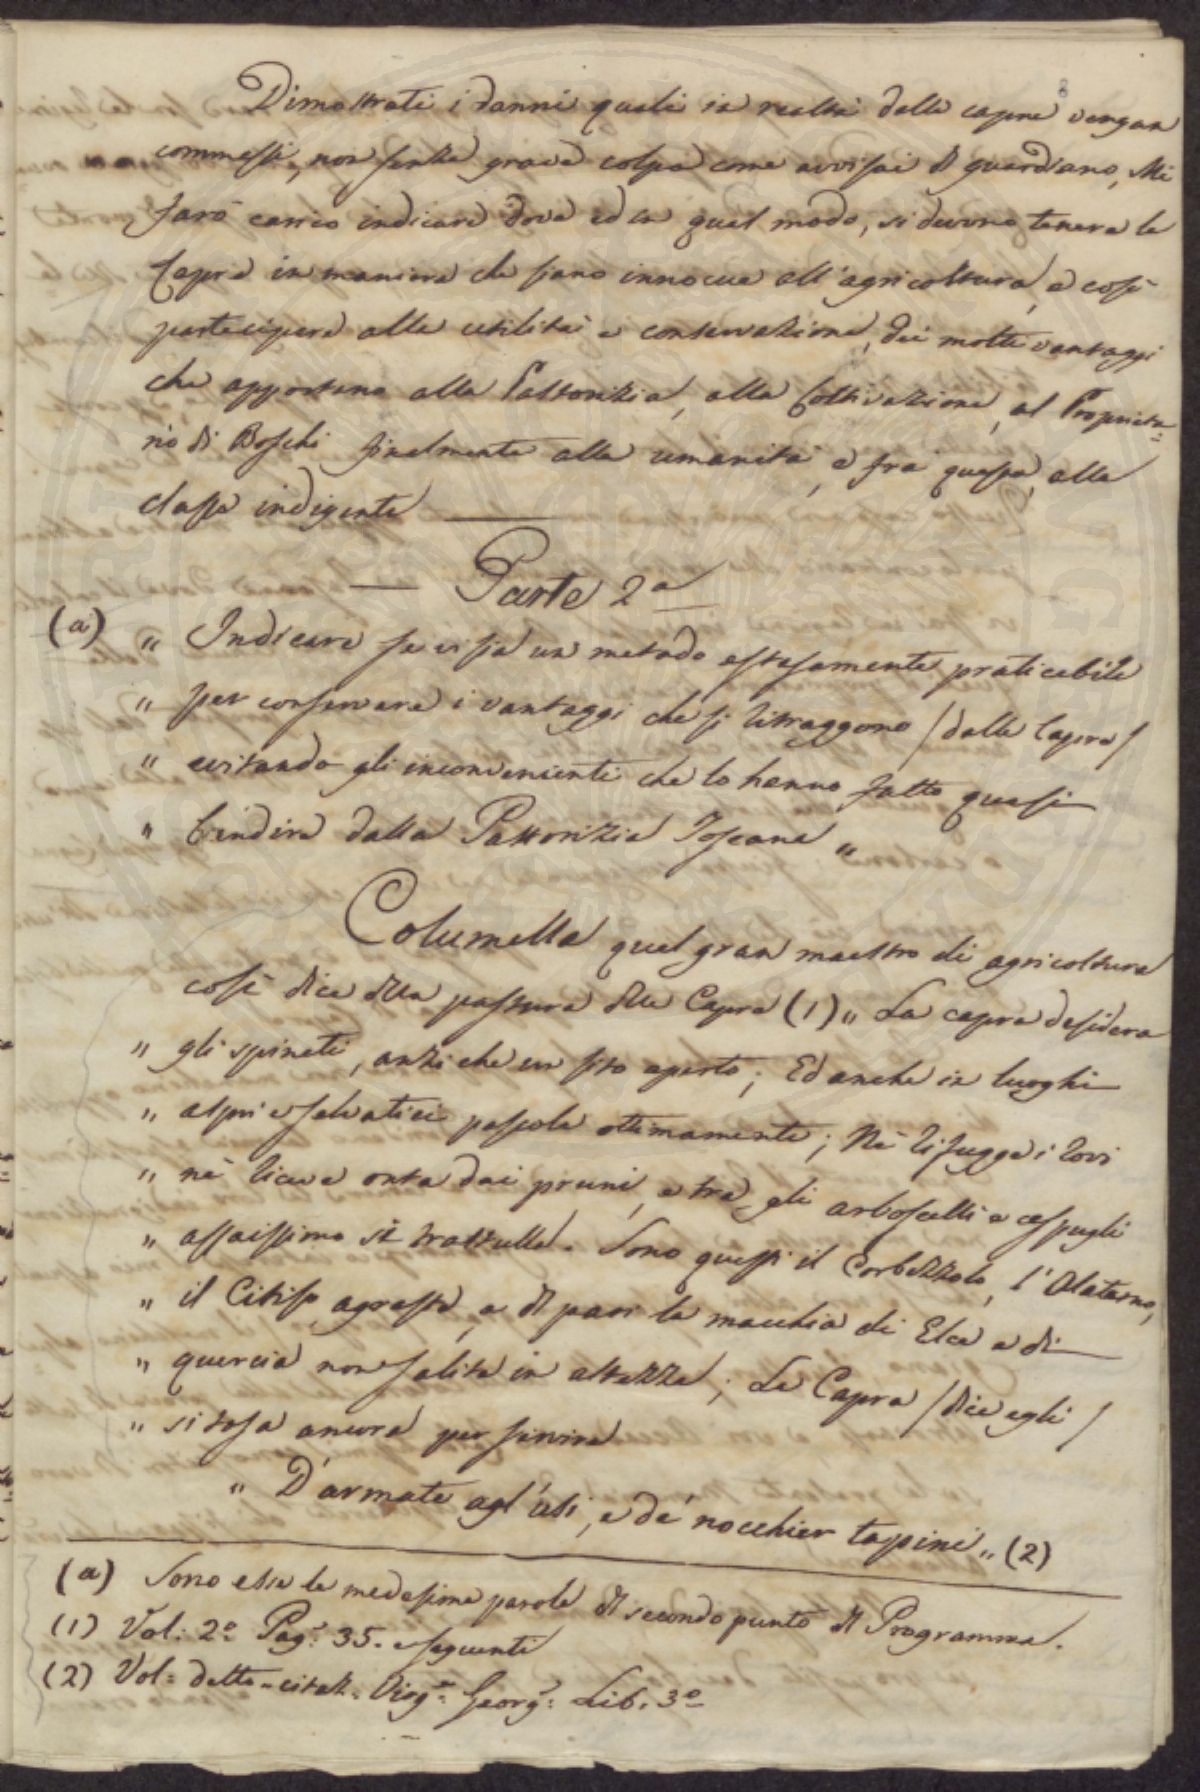 Dimostrati i danni quali in realtà dalle capre vengan
commessi, non senza grave colpa come avvisai del guardiano, Mi
farò carico indicare dove ed in qual modo, si devono tenere le
Capre in maniera che siano innocue all'agricoltura, e così
partecipare alla utilità e conservazione, dei molti vantaggi
che apportano alla Pastorizia, alla Coltivazione, al Proprieta=
rio di Boschi finalmente alla umanità, e fra questa, alla
classe indigente
— Parte 2a
(a) „ Indicare se vi sia un metodo estesamente praticabile
„ per conservare i vantaggi che si ritraggono / dalle Capre /
„ evitando gli inconvenienti che lo hanno fatto quasi
„ bandire dalla Pastorizia Toscana „
Columella quel gran maestro di agricoltura
così dice della pastura delle Capre (1) „ La capra desidera
„ gli spineti, anzi che un sito aperto; Ed anche in luoghi
„ aspri e salvatici pascola ottimamente; Nè rifugge i rovi
„ nè riceve onta dai pruni, e tra gli arboscelli e cespugli
„ assaissimo si trastulla. Sono questi il Corbezzolo, l'Alaterno,
„ il Citiso agreste, e di pari la macchia di Elce e di
„ quercia non salita in altezza; La Capra / dice egli /
„ si tosa ancora per servire
„ D'armate agl'usi, e de' nocchier tapini „ (2)
(a) Sono esse le medesime parole del secondo punto del Programma.
(1) Vol: 2o Pag: 35. e seguenti
(2) Vol: detto - citat. Virg: Georg: Lib. 3o